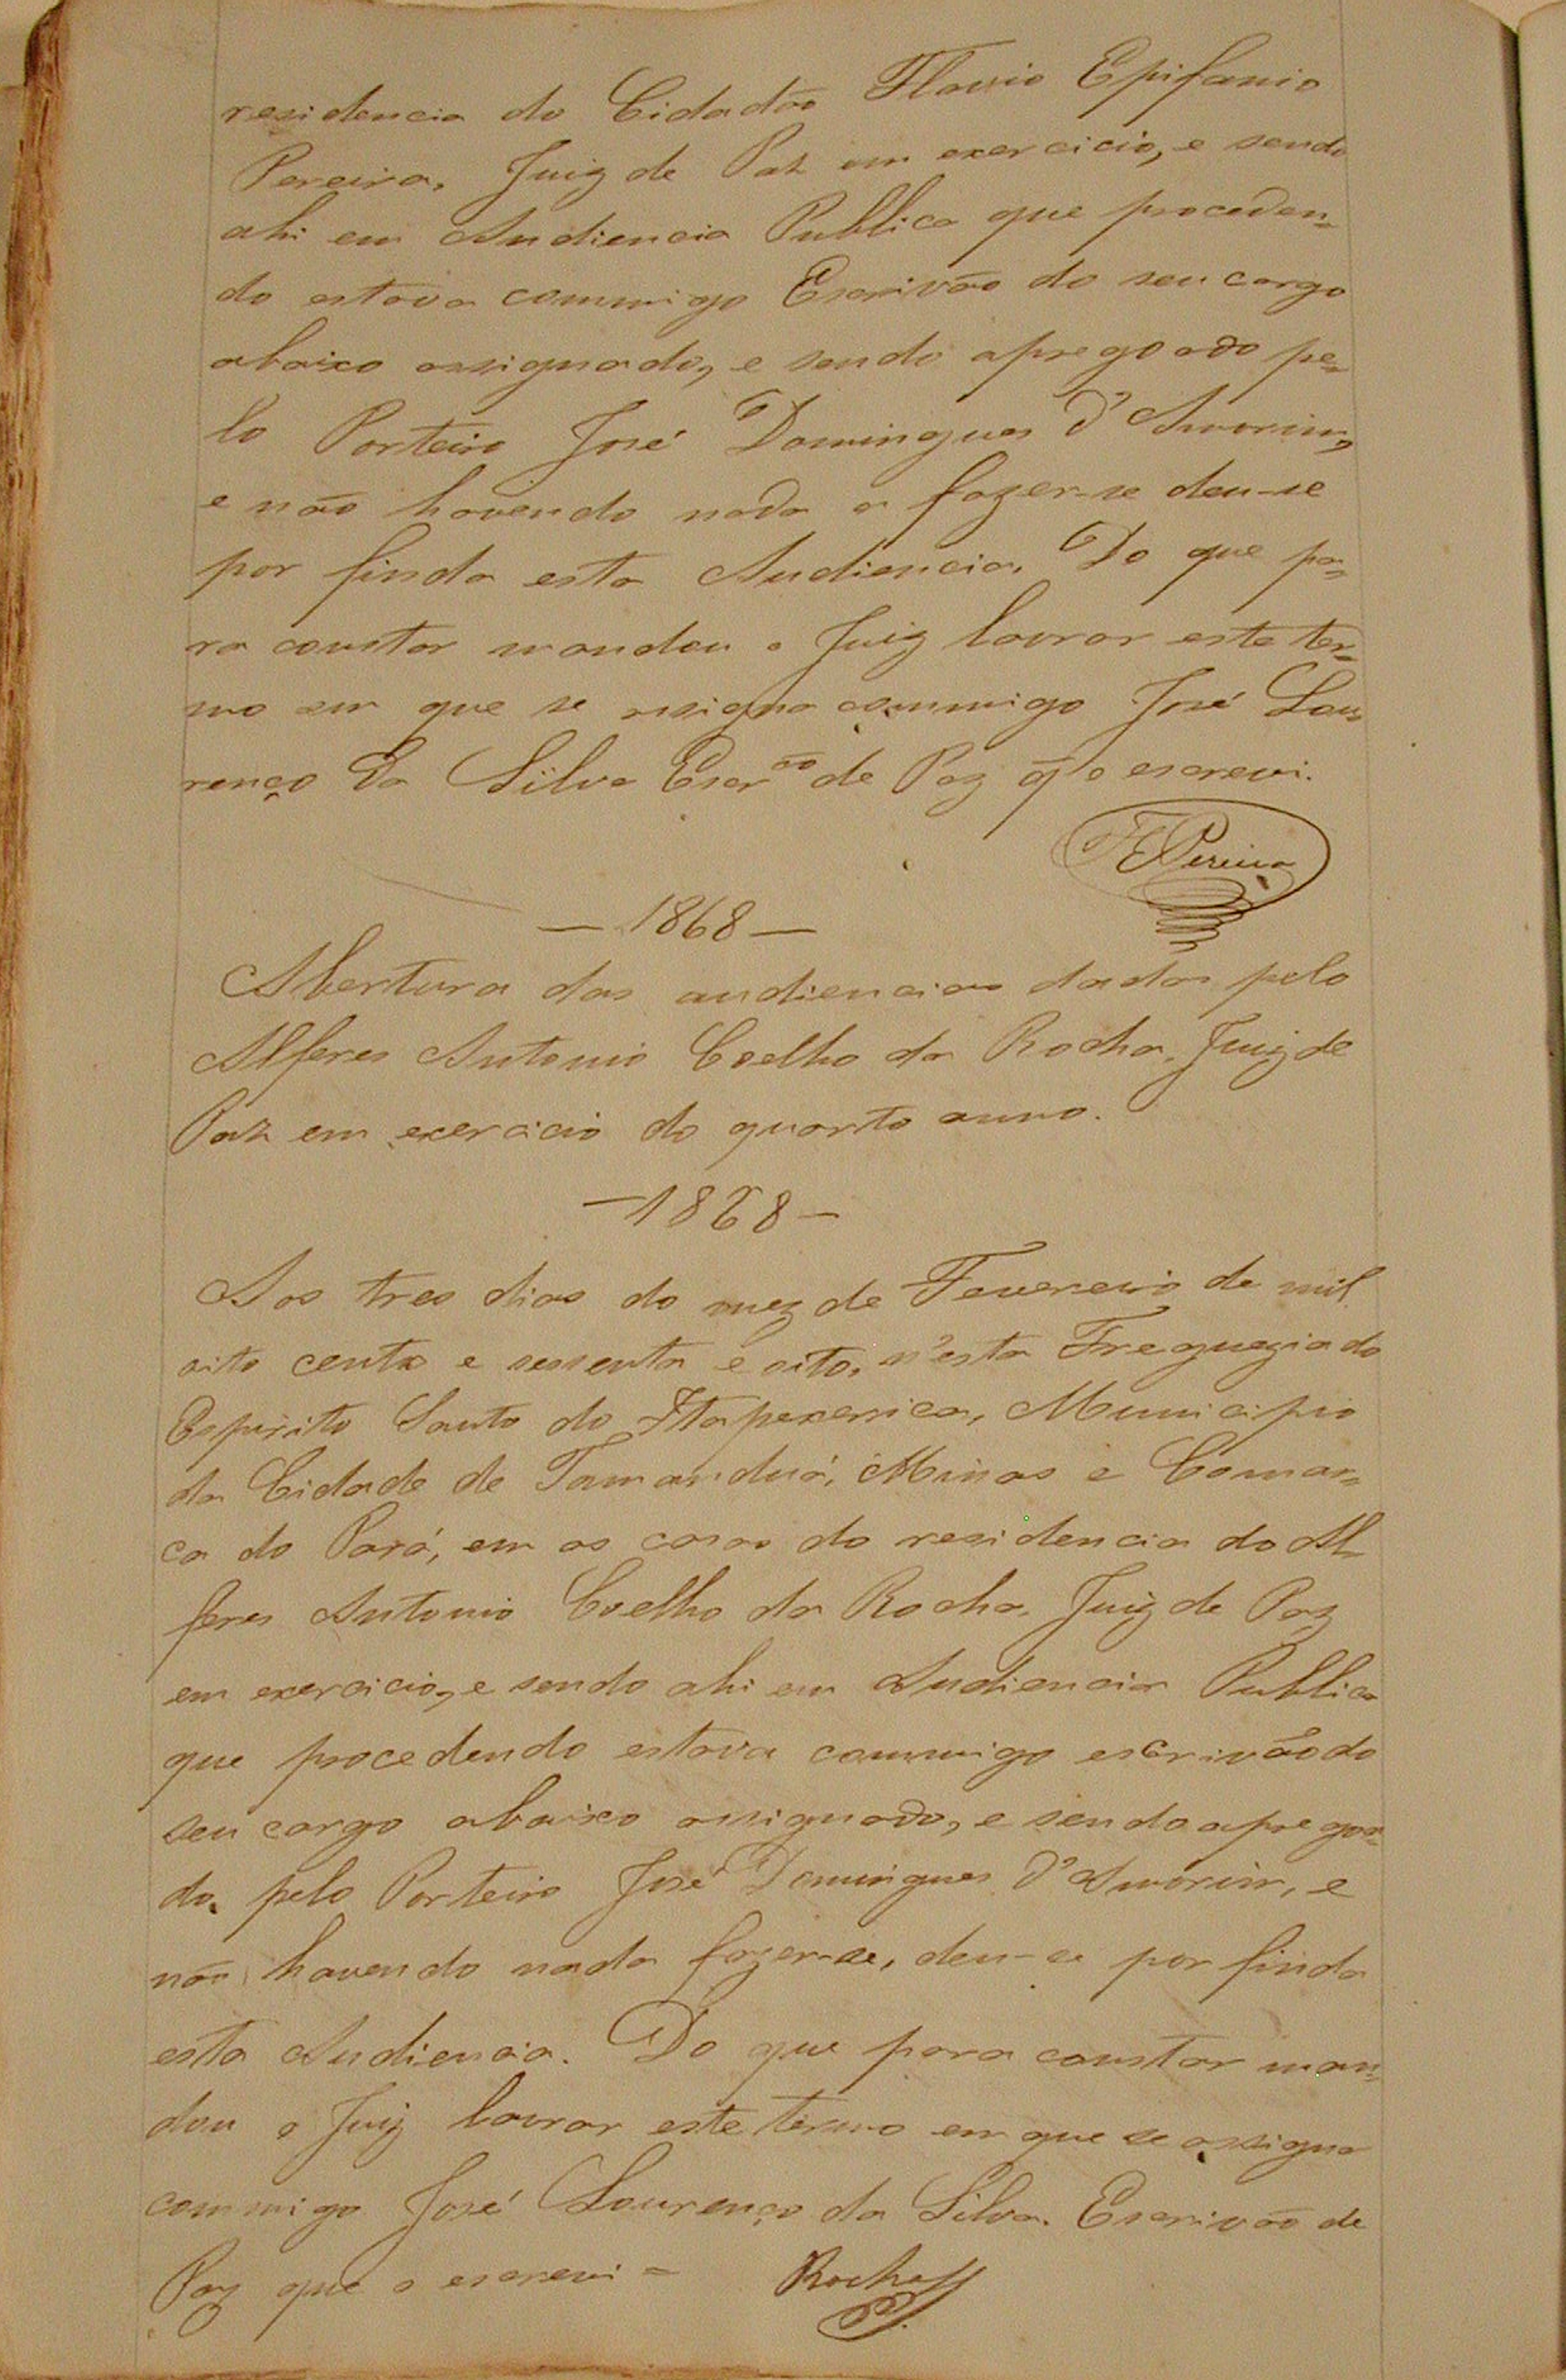 residencia do Cidadão Flavio Epifanio
Pereira, Juiz de Paz em exercicio, e sendo
ahi em Audiencia Publica que proceden-
do estava commigo Escrivão do seu cargo
abaixo assignado, e sendo apregoado pe-
lo Porteiro José Domingues d'Amorim,
e não havendo nada a fazer-se deu-se
por finda esta Audiencia. Do que pa-
ra constar mandou o Juiz lavrar este ter-
mo em que se assigna commigo José Lou
renço da Silva Escr.ão de Paz q̃ o escrevi.
FEPereira
— 1868 —
Abertura das audiencias dadas pelo
Alferes Antonio Coelho da Rocha, Juiz de
Paz em exercicio do quarto anno.
— 1868 —
Aos tres dias do mez de Fevereiro de mil
oito cento e sessenta e oito, n'esta Freguezia do
Espirito Santo do Itapexerica, Municipio
da Cidade de Tamanduá, Minas e Comar-
ca do Pará, em as casas do residencia do Al-
feres Antonio Coelho da Rocha, Juiz de Paz
em exercicio, e sendo ahi em Audiencia Publica
que procedendo estava commigo escrivão do
seu cargo abaixo assignado, e sendo apregoa-
do pelo Porteiro José Domingues d'Amorim, e
não havendo nada fazer-se, deu-se por finda
esta Audiencia. Do que para constar man-
dou o Juiz lavrar este termo em que se assigna
commigo José Lourenço da Silva. Escrivão de
Paz que o escrevi =
Rocha